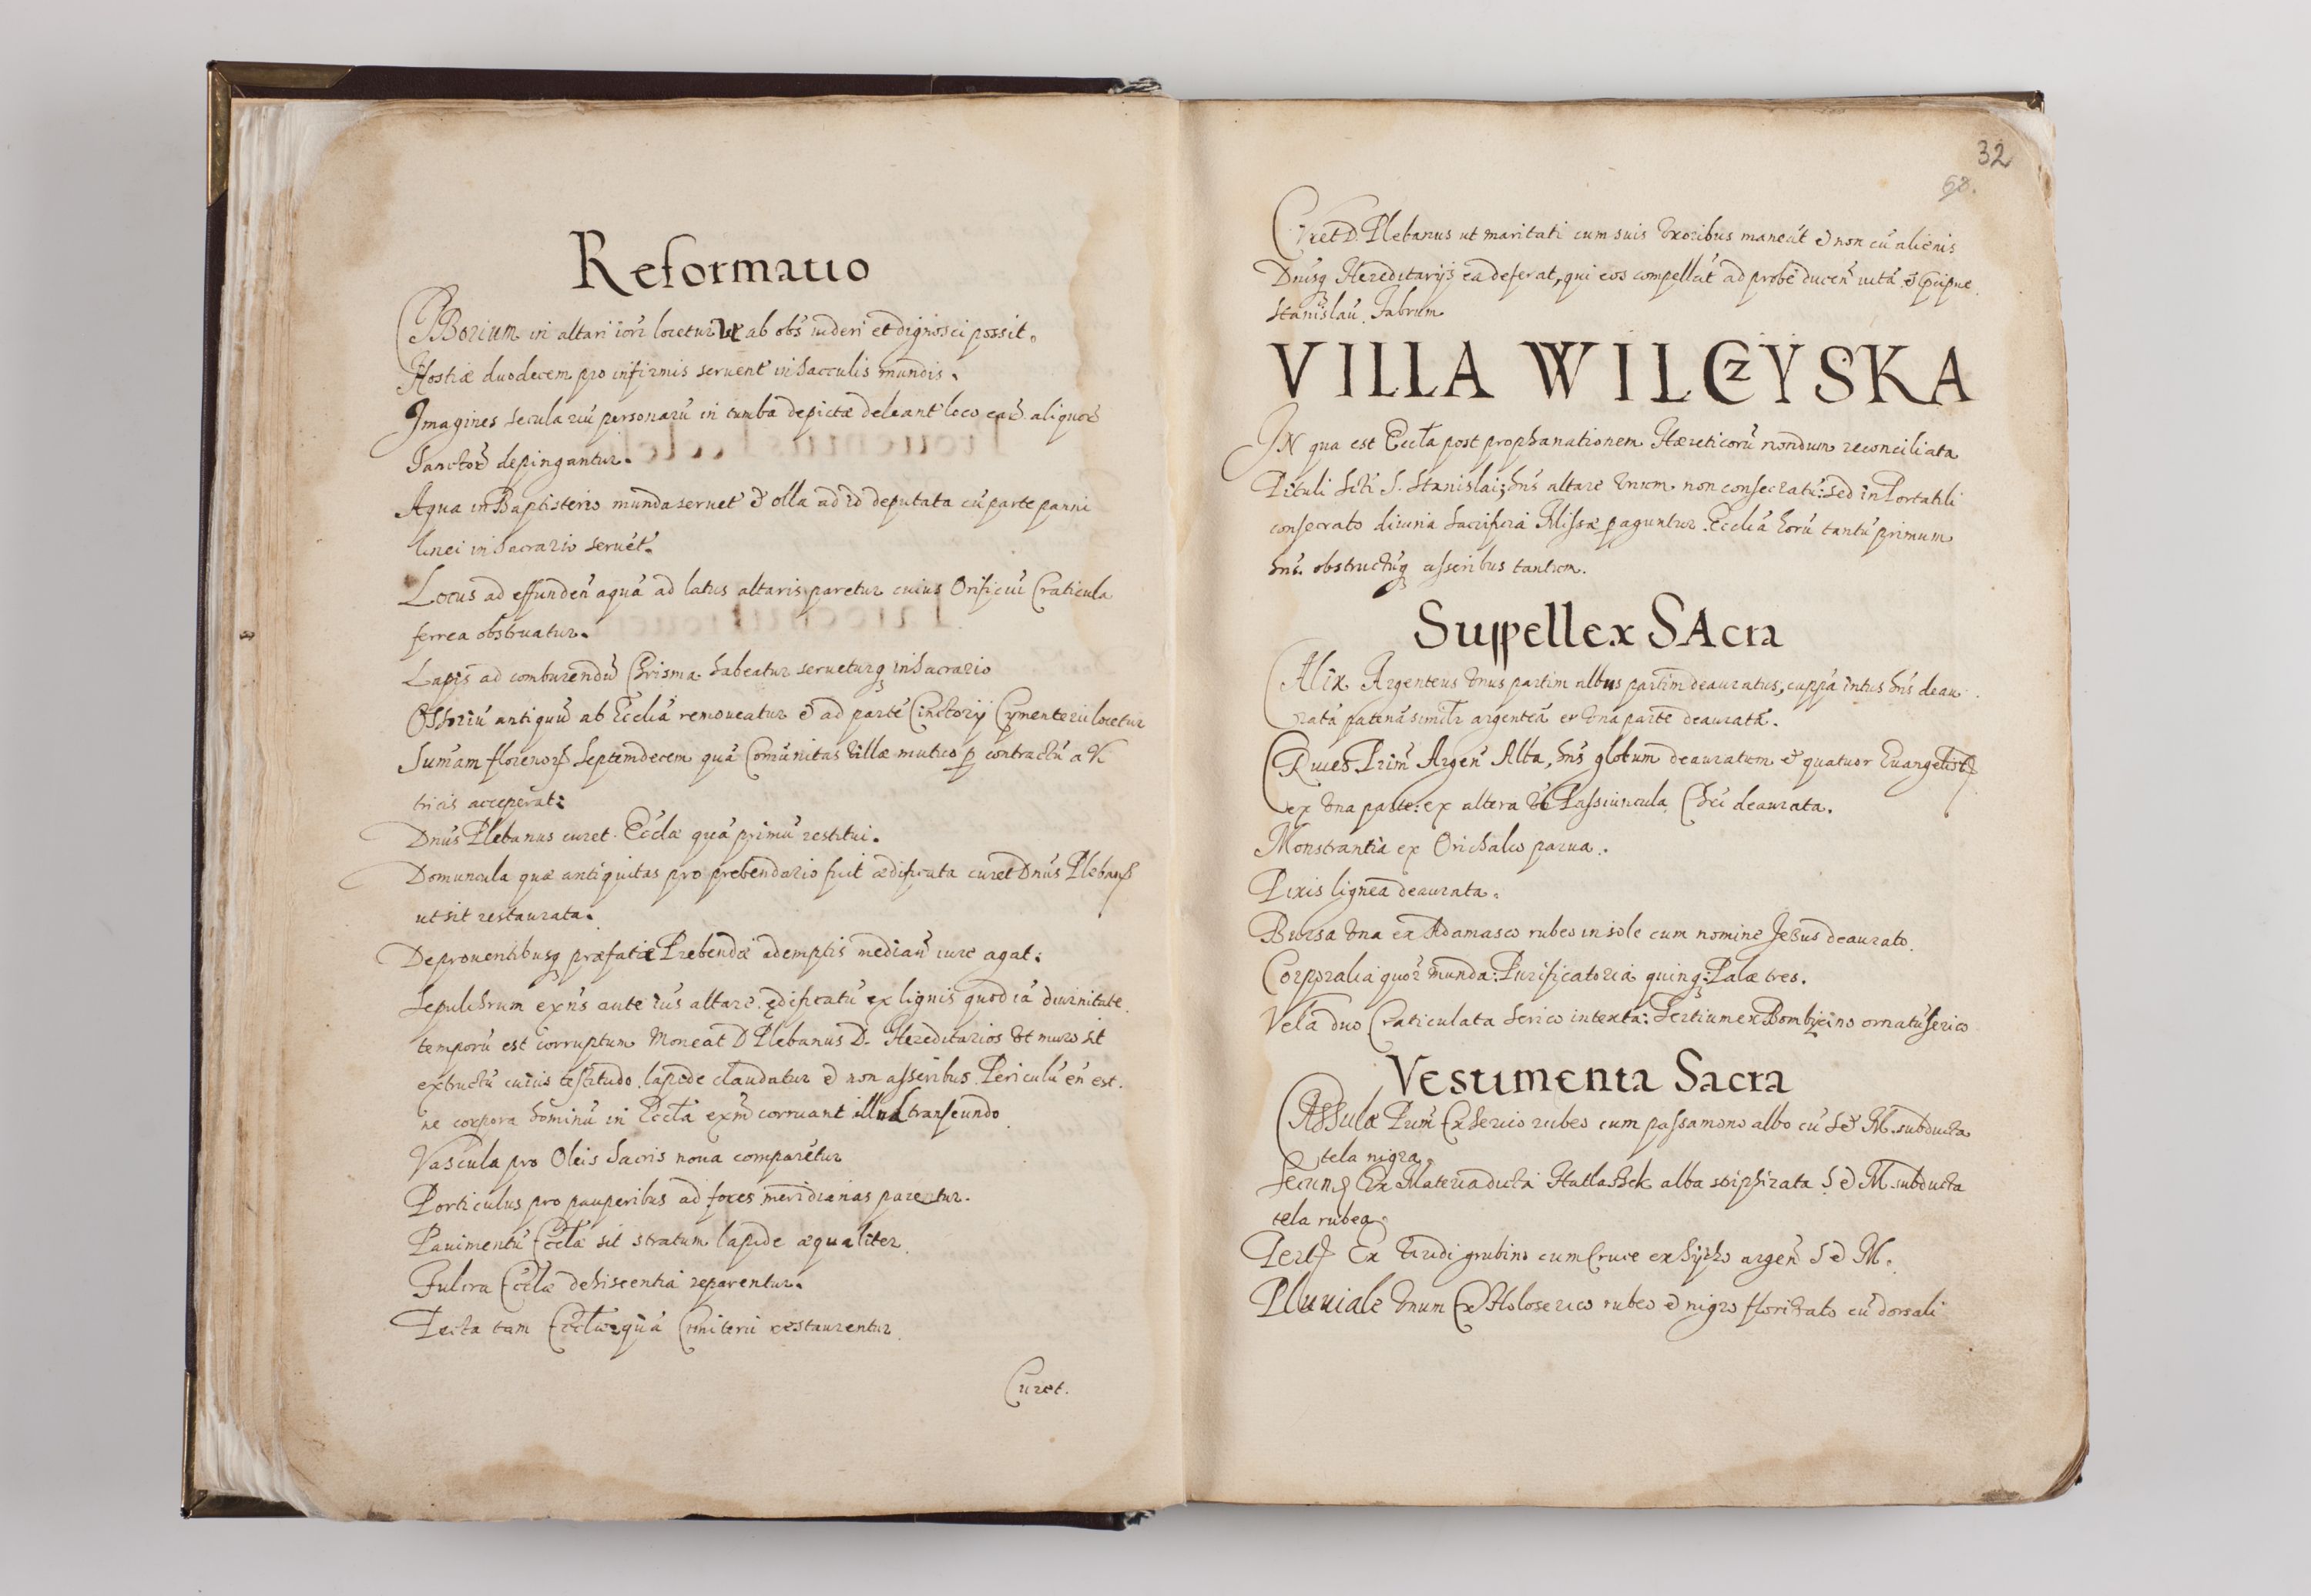 Reformatio
CIBorium in altari iori locetur Ut ab oibs uideri et dignosci possit.
Hostiæ duodecem pro infirmis seruent in sacculis mundis.
Imagines seculariũ personarũ in tumba depictæ deleant loco eaꝝ aliquoꝝ
Sanctoꝝ depingantur.
Aqua in Baptisterio munda seruet & olla ad id deputata cũ parte panni
linei in Sacrario seruet.
Locus ad effunden̄ aquã ad latus altaris paretur cuius Orificiũ Craticula
ferrea obstruatur.
Lapis ad comburendũ Chrisma habeatur serueturq in Sacrario
Ossoriũ antiquũ ab Ecclia remoueatur & ad partẽ Cinctorij Cymenterii locetur
Sum̃am florenoꝝ Septemdecem quã Com̃unitas uillæ mutuo ꝑ contractũ a
tricis acceperat:
Dnũs Plebanus curet Eccłæ quã primũ restitui.
Domuncula quæ antiquitas pro prebendario fuit ædificata curet Dnũs Plebanꝰ
ut sit restaurata.
De prouentibusq præfatæ Prebendæ ademptis median̄ iure agat.
Sepulchrum exñs ante ius altare ędificatũ ex lignis quod iã diuinitate
temporũ est corruptum Moneat D Plebanus D. Hereditarios Ut muro sit
extructũ cuius testitudo lapide claudatur & non asseribus Periculũ en̄ est.
ne corpora hominũ in Eccła exñd corruant illud transeundo
Vascula pro Oleis Sacris noua comparẽtur
Porticulus pro pauperibus ad fores meridianas paretur.
Pauimentũ Eccłæ sit stratum lapide æqualiter
Fulcra Eccłæ dehiscentia reparentur.
Tecta tam Eccłiæ quã Cimiterii restaurentur
Curet.
32
68.
CVret D. Plebanus ut maritati cum suis Uxoribus maneãt & non cũ alienis
Dnisq Hereditarijs ea deferat, qui eos compellãt ad probẽ ducen̄ uitã & pcipue
Stanislaũ Fabrum
VILLA WILCZYSKA
IN qua est Eccła post prophanationem Hæreticorũ nondum reconciliata
Tituli Scti S. Stanislai; hñs altare Unicm non consecratũ: sed in Portatili
consecrato diuina Sacrificia Missæ paguntur. Ecclia horũ tantũ primum
hñs obstructũq asseribus tantum.
Suppellex SAcra
CAlix Argenteus Unus partim albus partim deauratus, cuppã intus hñs deau
ratã patenã similr argenteã ex Una parte deauratã.
CRuces Prim̃ Argen̄ Alta, hñs globum deauratum & quatuor Euangelistꝭ
ex Una parte: ex altera Ũ Passiuncula Chri deaurata.
Monstrantia ex Orichalco parua.
Pixis lignea deaurata.
Bursa Una ex Adamasco rubeo in sole cum nomine Jesus deaurato
Corporalia quor munda: Purificatoria quinq: Palæ tres.
Vela duo Craticulata Serico intexta: Tertium ex Bombycino ornatũ serico
Vestimenta Sacra
CAssulæ Prim̃ Ex Serico rubeo cum passamono albo cũ S & M. subducta
tela nigra.
Secunꝭ Ex Materia dicta Hatlashek alba stiphirata S & M. subducta
tela rubea.
Tertꝭ Ex Uaridi grubino cum Cruce ex Sychs argen̄ S & M.
Pluuiale Unum Ex Holoserico rubeo & nigro florisato cũ dorsali